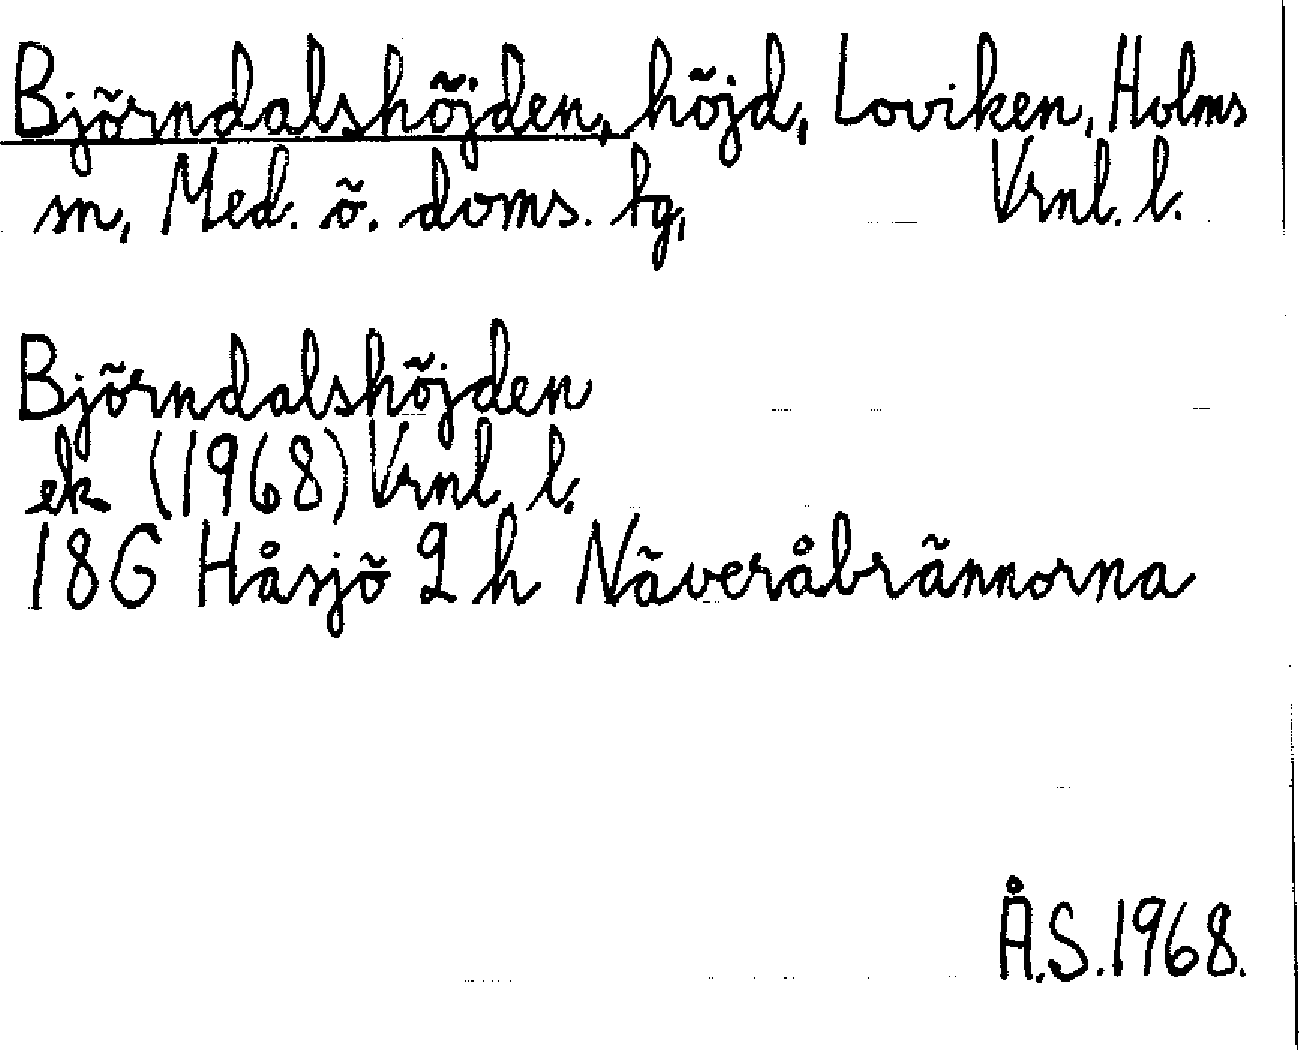 Björndalshöjden, höjd, Loviken, Holms
sn, Med. ö. doms. hg,
Vrnl. l.
Björndalshöjden
ek (1968) Vrnl. l.
18G Håsjö 2 h Näveråbrännorna
Å.S. 1968.